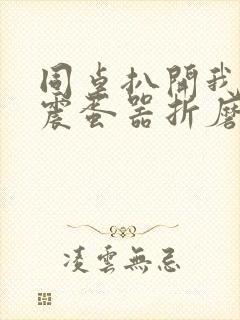 同桌扒開我
震蛋器折磨
凌雲無忌